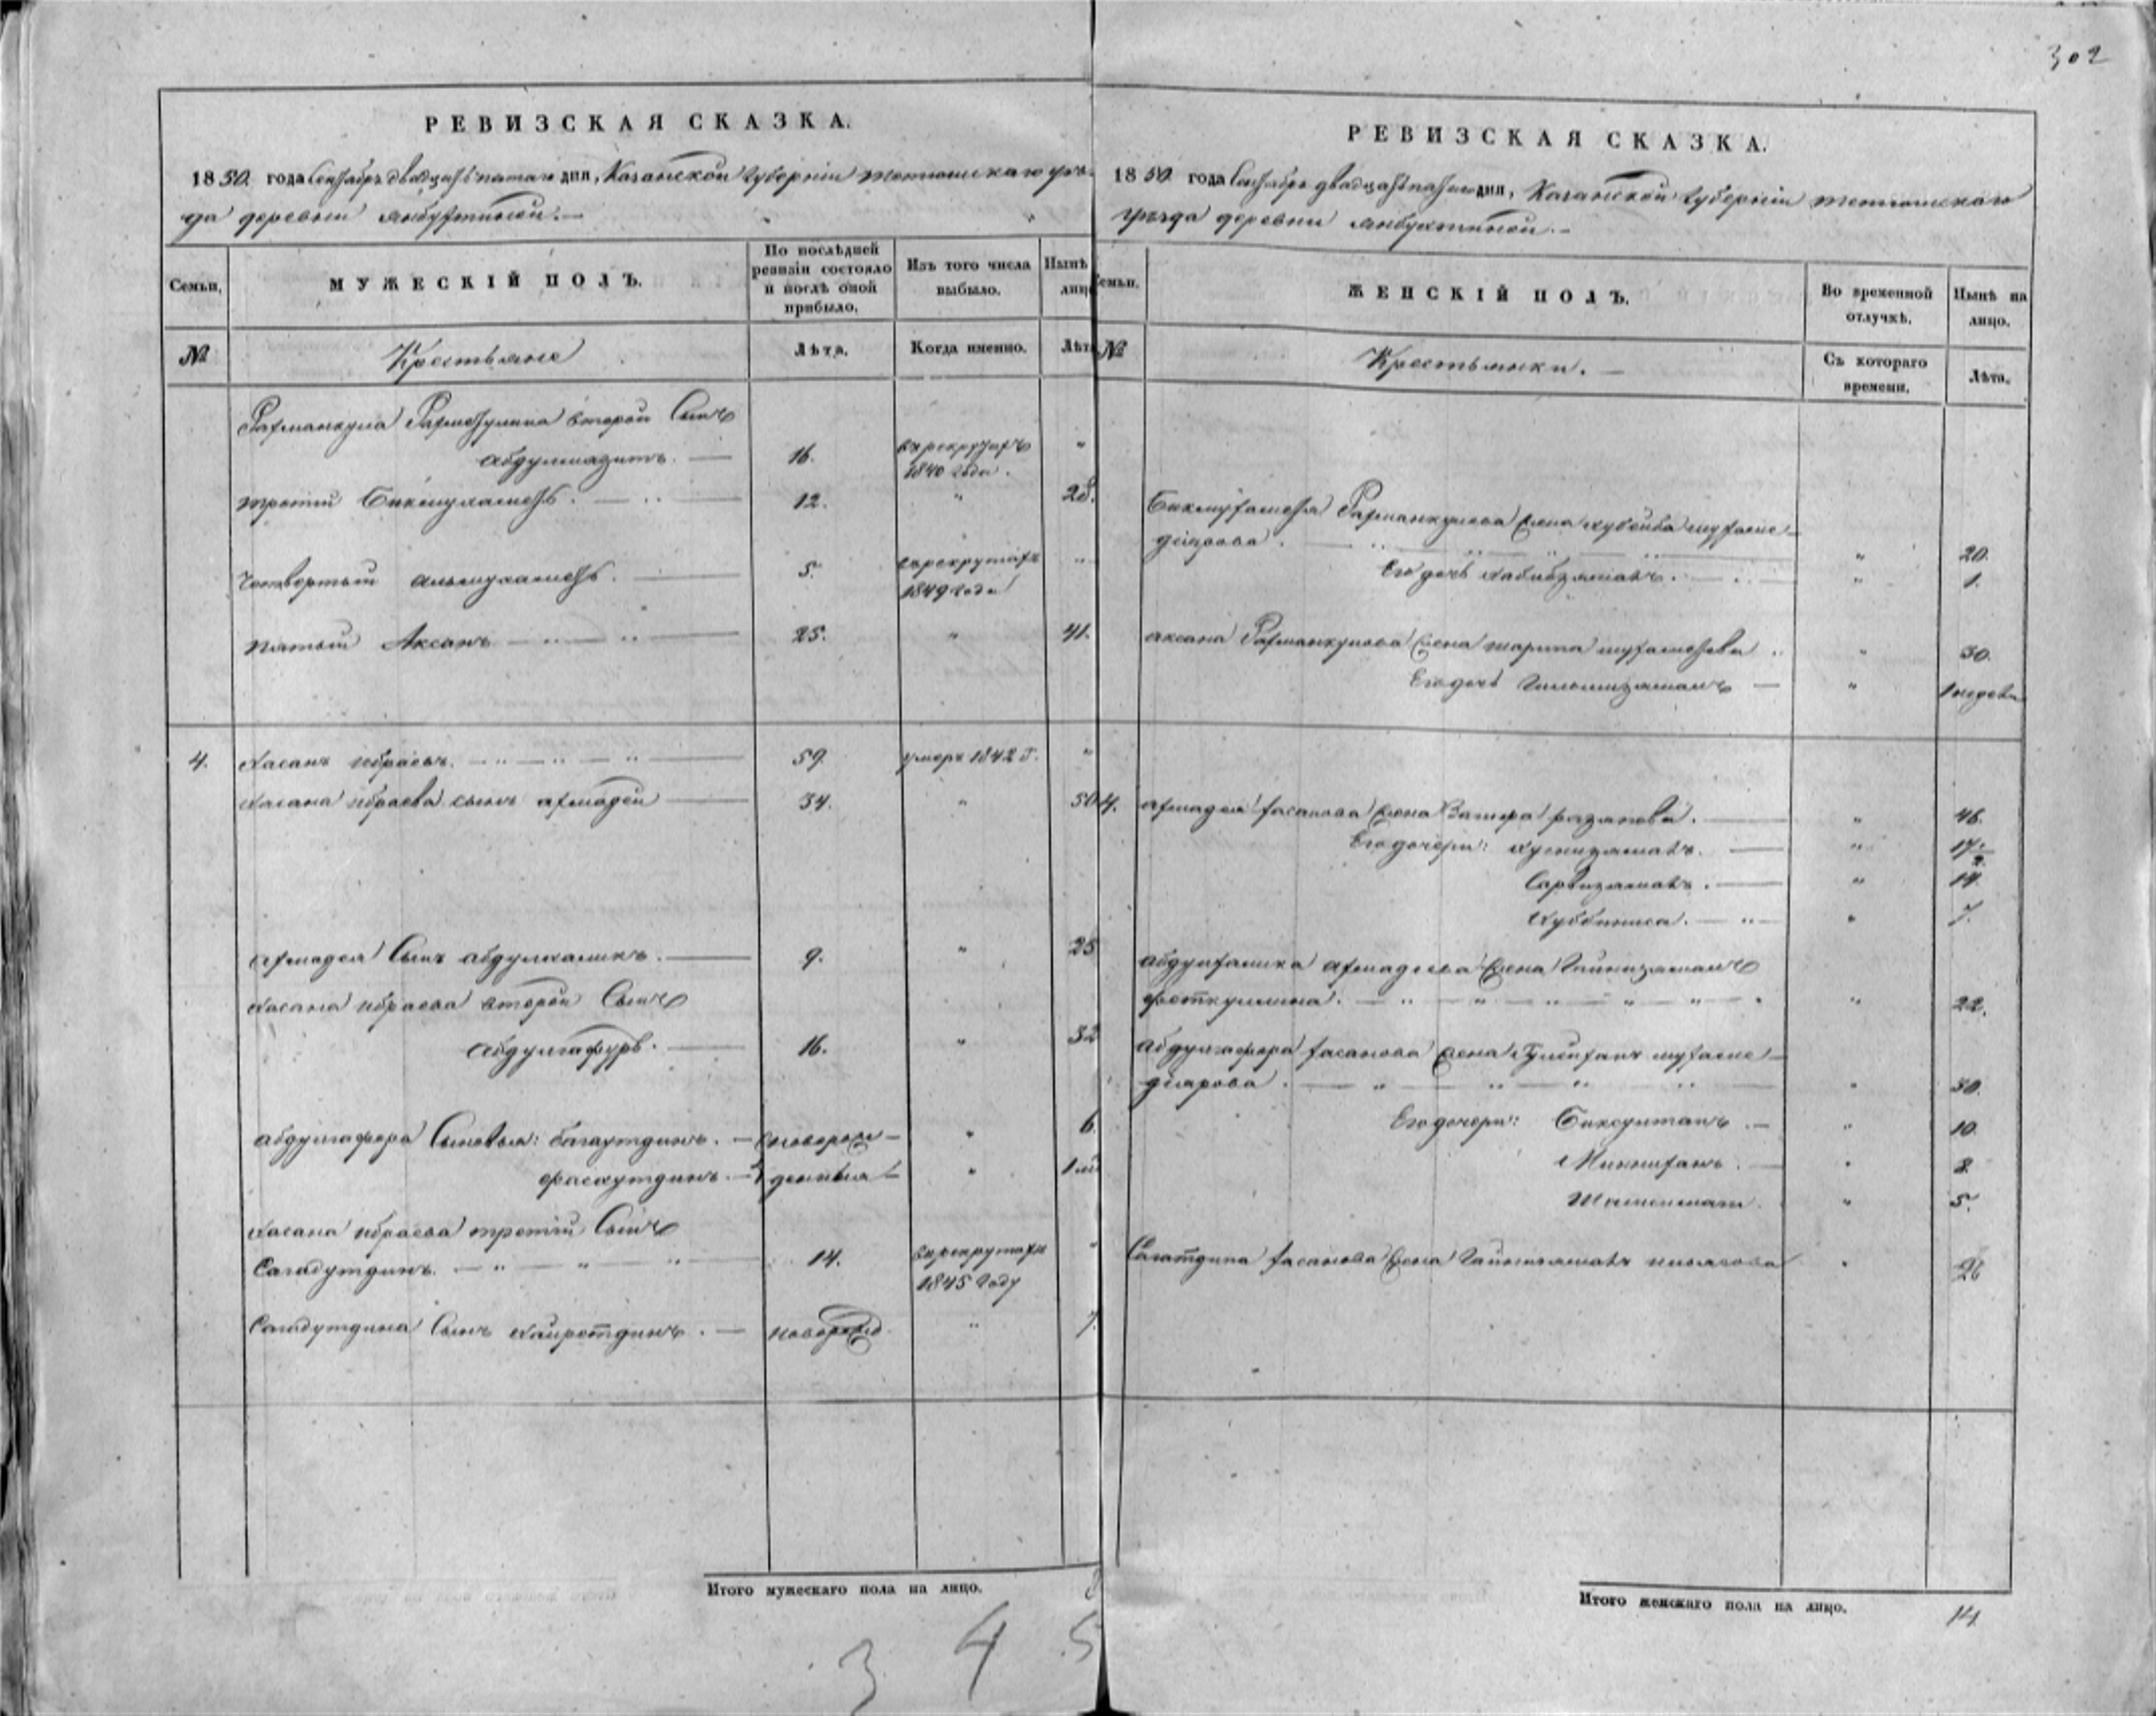 302
РЕВИЗСКАЯ СКАЗКА.
1850. года Сентября двадцать пятаго дня, Казанской губернии Тетюшскаго уез-
да деревни Янбухтиной. —
Семьи.
МУЖЕСКІЙ ПОЛЪ.
По послѣдней ревизіи состояло и послѣ оной прибыло.
Изъ того числа выбыло.
Нынѣ лицо
№
Крестьяне
Лѣта.
Когда именно.
Лѣта
Рахманкула Рахметуллина второй Сынъ
Абдулвазитъ. — 16. въ рекрутахъ 1840 года. "
третій Бикмухаметь. — 12. " 28.
Четвертый Альмухаметь. — 5. въ рекрутахъ 1849 года "
пятый Аксанъ — 25. " 41.
4. Хасанъ Ибраевъ. — 59. умеръ 1842 г. "
Хасана Ибраева сынъ Ахмадей — 34. " 50
Ахмадея Сынъ Абдулхаликъ. — 9. " 25
Хасана Ибраева второй Сынъ
Абдулгафуръ. — 16. " 32
Абдулгафора Сыновья: Багаутдинъ. — новорож- " 6.
Фасхутдинъ. — денныя " 1
Хасана Ибраева третій Сынъ
Сагадутдинъ. — 14. въ рекрутахъ 1845 году "
Сагадутдина Сынъ Хайретдинъ. — новорожд. " 7.
Итого мужескаго пола на лицо.
3 4 5
РЕВИЗСКАЯ СКАЗКА.
1850. года Сентября двадцать пятаго дня, Казанской губернии Тетюшскаго
уезда деревни Янбухтиной. —
Семьи.
ЖЕНСКІЙ ПОЛЪ.
Во временной отлучкѣ.
Нынѣ на лицо.
№
Крестьянки. —
Съ котораго времени.
Лѣта.
Бикмухаметя Рахманкулова жена Хубейба Мухаме-
діярова. — " 20.
Его дочь Хабибзямалъ. — " 1.
Аксана Рахманкулова жена Марпа Мухаметева " 30.
Его дочь — " 1 неделя
4. Ахмадея Хасанова жена Разяпова. — " 46.
Его дочери: Хуснизямалъ. — " 17 1/2
Сарвизямалъ. — " 14.
Хуббниса. — " 7.
Абдулхалика Ахмадеева жена Гайнизямалъ
Феткуллина. — " 22.
Абдулгафора Хасанова жена Гулейханъ Мухаме-
діярова. — " 30.
Его дочери: Биксултанъ. — " 10.
Минниханъ. — " 8.
" 5.
Сагатдина Хасанова жена Гайнизямалъ Ильясова " 26
Итого женскаго пола на лицо. 14